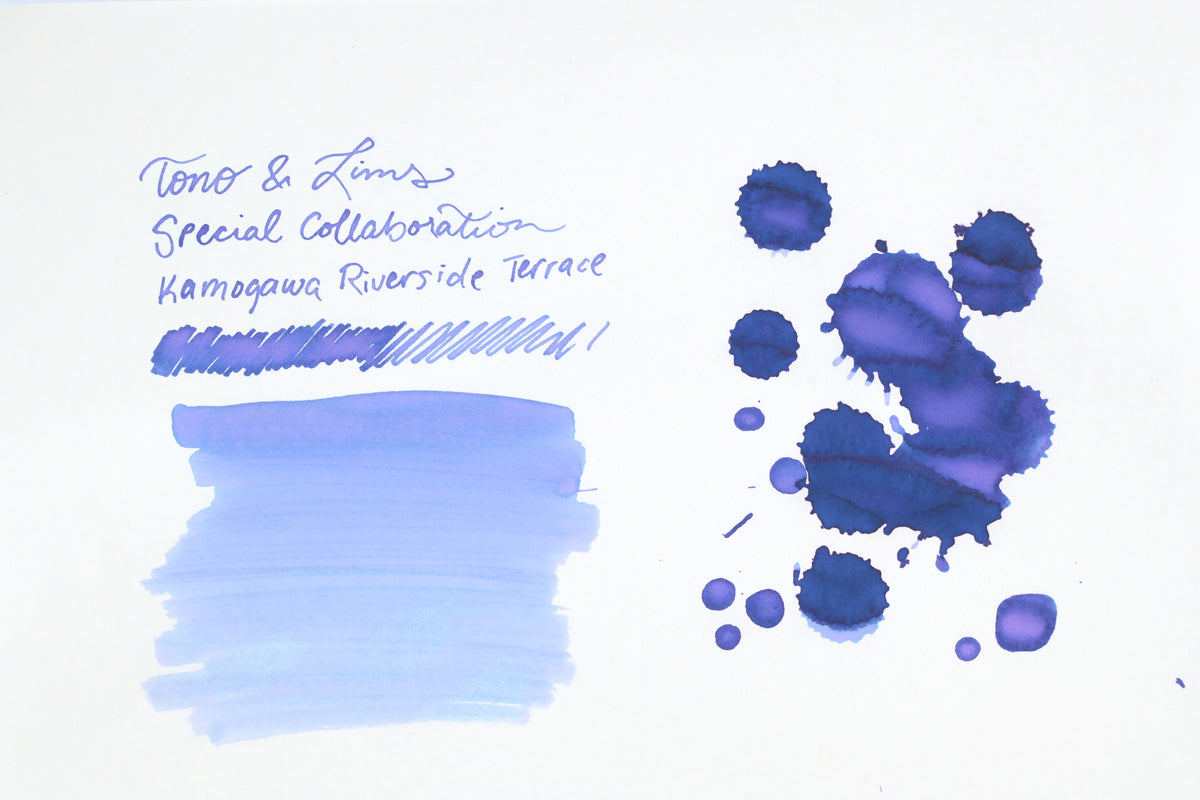 Tono & Lims
Special Collaboration
Kamogawa Riverside Terrace